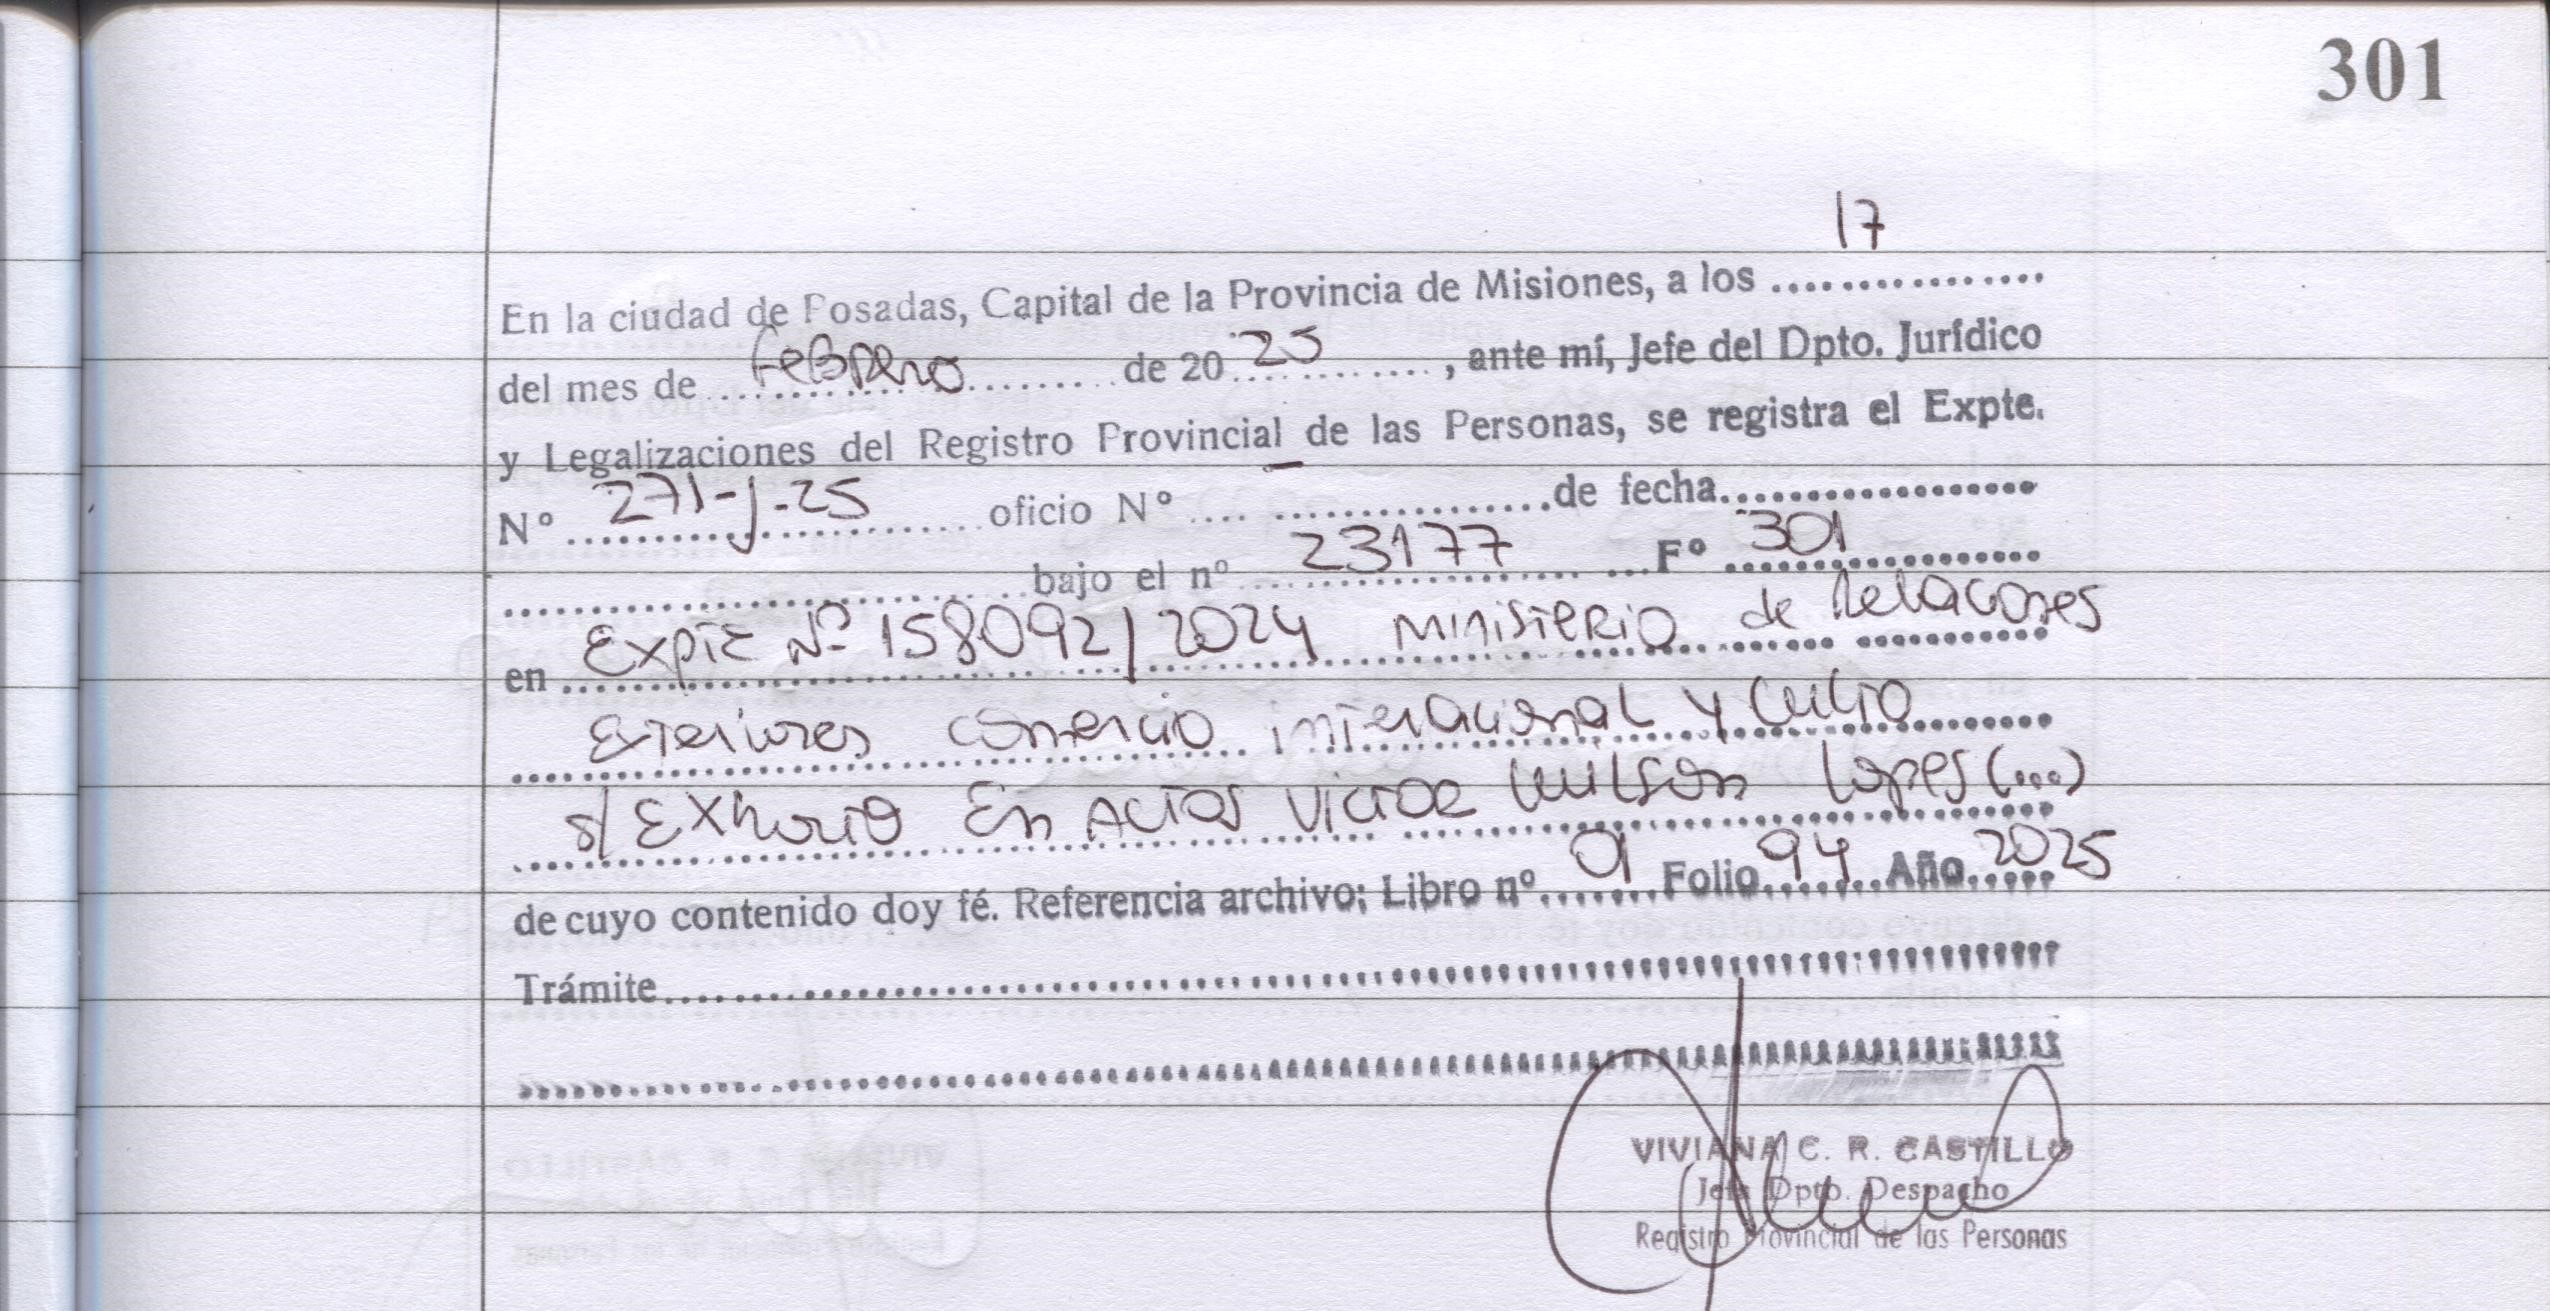 301
17
En la ciudad de Posadas, Capital de la Provincia de Misiones, a los ................
del mes de ... Febrero ......... de 20 25 ........, ante mí, Jefe del Dpto. Jurídico
y Legalizaciones del Registro Provincial de las Personas, se registra el Expte.
Nº 271-J-25 ...... oficio Nº .... - ................ de fecha...................
.............................. bajo el nº 23177 ... Fº 301 ............
en Expte Nº 158092/2024 Ministerio de Relaciones
Exteriores comercio interacional y Culto
s/ Exhorto En Actos Victor Wilson Lopes (...)
de cuyo contenido doy fé. Referencia archivo: Libro nº 01 Folio 94 Año 2025
Trámite........................................
........................................
VIVIANA C. R. CASTILLO
Jefa Dpto. Despacho
Registro Provincial de las Personas